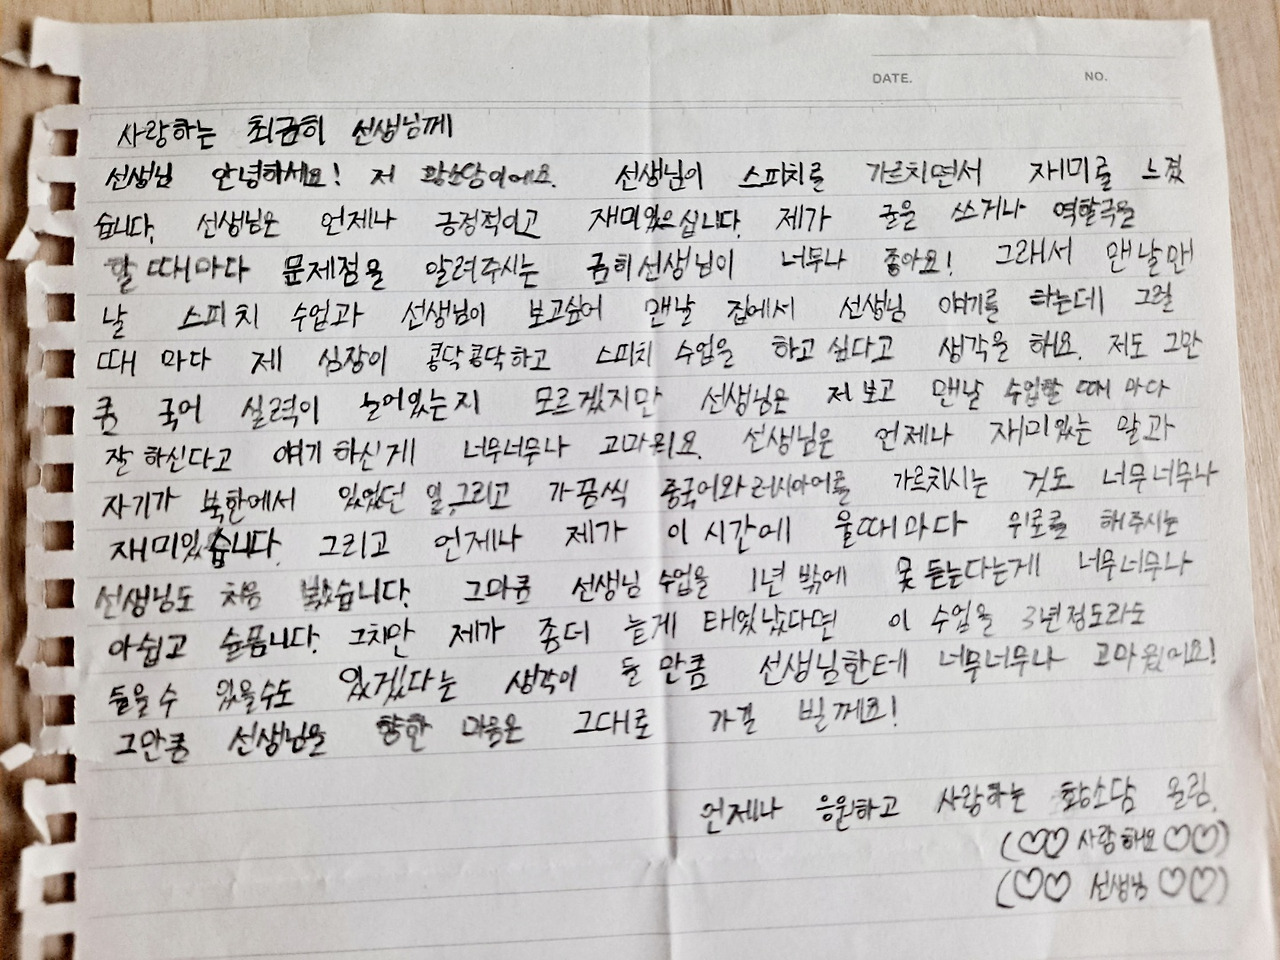 DATE. NO.
사랑하는 최금희 선생님께
선생님 안녕하세요! 저 황소담이에요. 선생님이 스피치를 가르치면서 재미를 느꼈
습니다. 선생님은 언제나 긍정적이고 재미있으십니다. 제가 글을 쓰거나 역할극을
할 때마다 문제점을 알려주시는 금희선생님이 너무나 좋아요! 그래서 맨날맨
날 스피치 수업과 선생님이 보고싶어 맨날 집에서 선생님 얘기를 하는데 그럴
때 마다 제 심장이 콩닥콩닥하고 스피치 수업을 하고 싶다고 생각을 해요. 저도 그만
큼 국어 실력이 늘어있는지 모르겠지만 선생님은 저 보고 맨날 수업할 때 마다
잘 하신다고 얘기 하신게 너무너무나 고마워요. 선생님은 언제나 재미있는 말과
자기가 북한에서 있었던 일, 그리고 가끔씩 중국어와 러시아어를 가르치시는 것도 너무너무나
재미있습니다. 그리고 언제나 제가 이 시간에 울때마다 위로를 해주시는
선생님도 처음 봤습니다. 그마큼 선생님 수업을 1년 밖에 못 듣는다는게 너무너무나
아쉽고 슬픔니다. 그치만 제가 좀더 늦게 태었났다면 이 수업을 3년정도라도
들을수 있을수도 있겠다는 생각이 들 만큼 선생님한테 너무너무나 고마웠어요!
그만큼 선생님을 향한 마음은 그대로 가길 빌께요!
언제나 응원하고 사랑하는 황소담 올림.
(♡♡ 사랑해요 ♡♡)
(♡♡ 선생님 ♡♡)